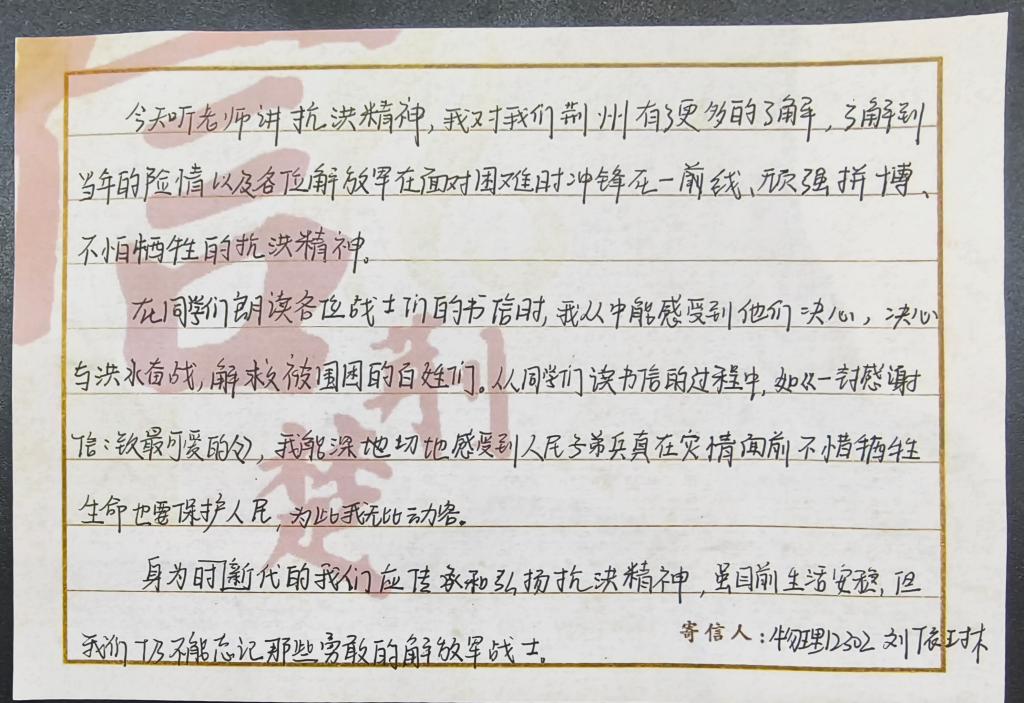 今天听老师讲抗洪精神，我对我们荆州有了更多的了解，了解到
当年的险情以及各位解放军在面对困难时冲锋在一前线、顽强拼博、
不怕牺牲的抗洪精神。
在同学们朗读各位战士们的书信时，我从中能感受到他们决心，决心
与洪水奋战，解救被围困的百姓们。从同学们读书信的过程中，如《一封感谢
信：致最可爱的人》，我能深地切地感受到人民子弟兵真在灾情面前不惜牺牲
生命也要保护人民，为此我无比动容。
身为时新代的我们应传承和弘扬抗洪精神，虽目前生活安稳，但
我们仍不能忘记那些勇敢的解放军战士。
寄信人：物理12302 刘
信
荆
楚